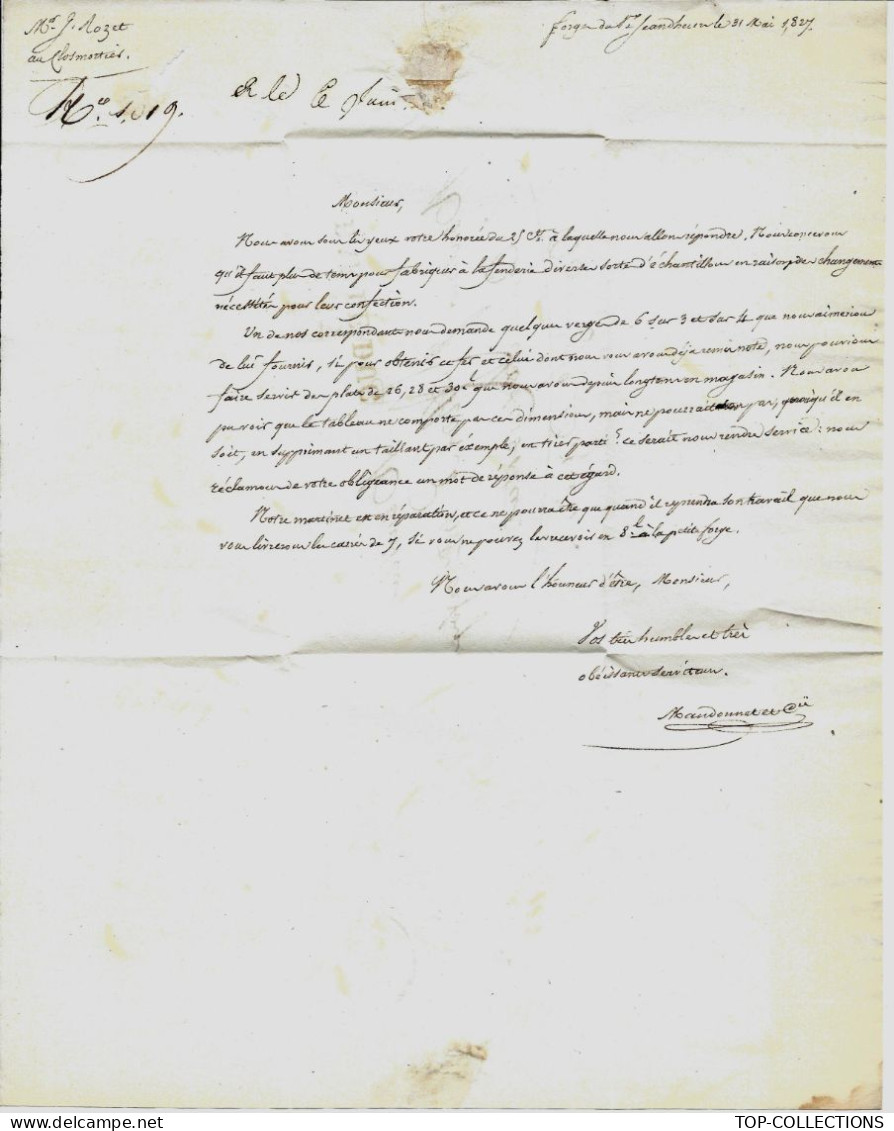 Mr. J. Rozet
au Closmortier.
forges de St. Jeandheurs le 31 Mai 1,827.
R le 2 Juin
Monsieur,
Nous avons sous les yeux votre honorée du 25 Ct. à laquelle nous allons répondre. Nous concevons
qu'il faut plus de tems pour fabriquer à la fenderie diverses sortes d'échantillons en raison des changemens
nécessités pour leur confection.
Un de nos correspondants nous demande quelques verges de 6 sur 3 et sur 4 que nous aimerions
de lui fournir, si pour obtenir ce fer et celui dont nous vous avons déjà remis note, nous pouvions
faire servir des plats de 26, 28 et 30 que nous avons depuis longtems en magasin. Nous avons
pu voir que le tableau ne comporte pas ces dimensions, mais ne pourrait on pas, quoiqu'il en
soit, en supprimant un taillant par exemple, en tirer parti : ce serait nous rendre service : nous
réclamons de votre obligeance un mot de réponse à cet égard.
Notre martinet est en réparation, et ce ne pourra être que quand il reprendra son travail que nous
vous livrerons les carrés de 7, si vous ne pouvez les recevoir en 8 à la petite forge.
Nous avons l'honneur d'être, Monsieur,
Vos très humbles et très
obéissants serviteurs.
Mandonnet et Cie
TOP-COLLECTIONS